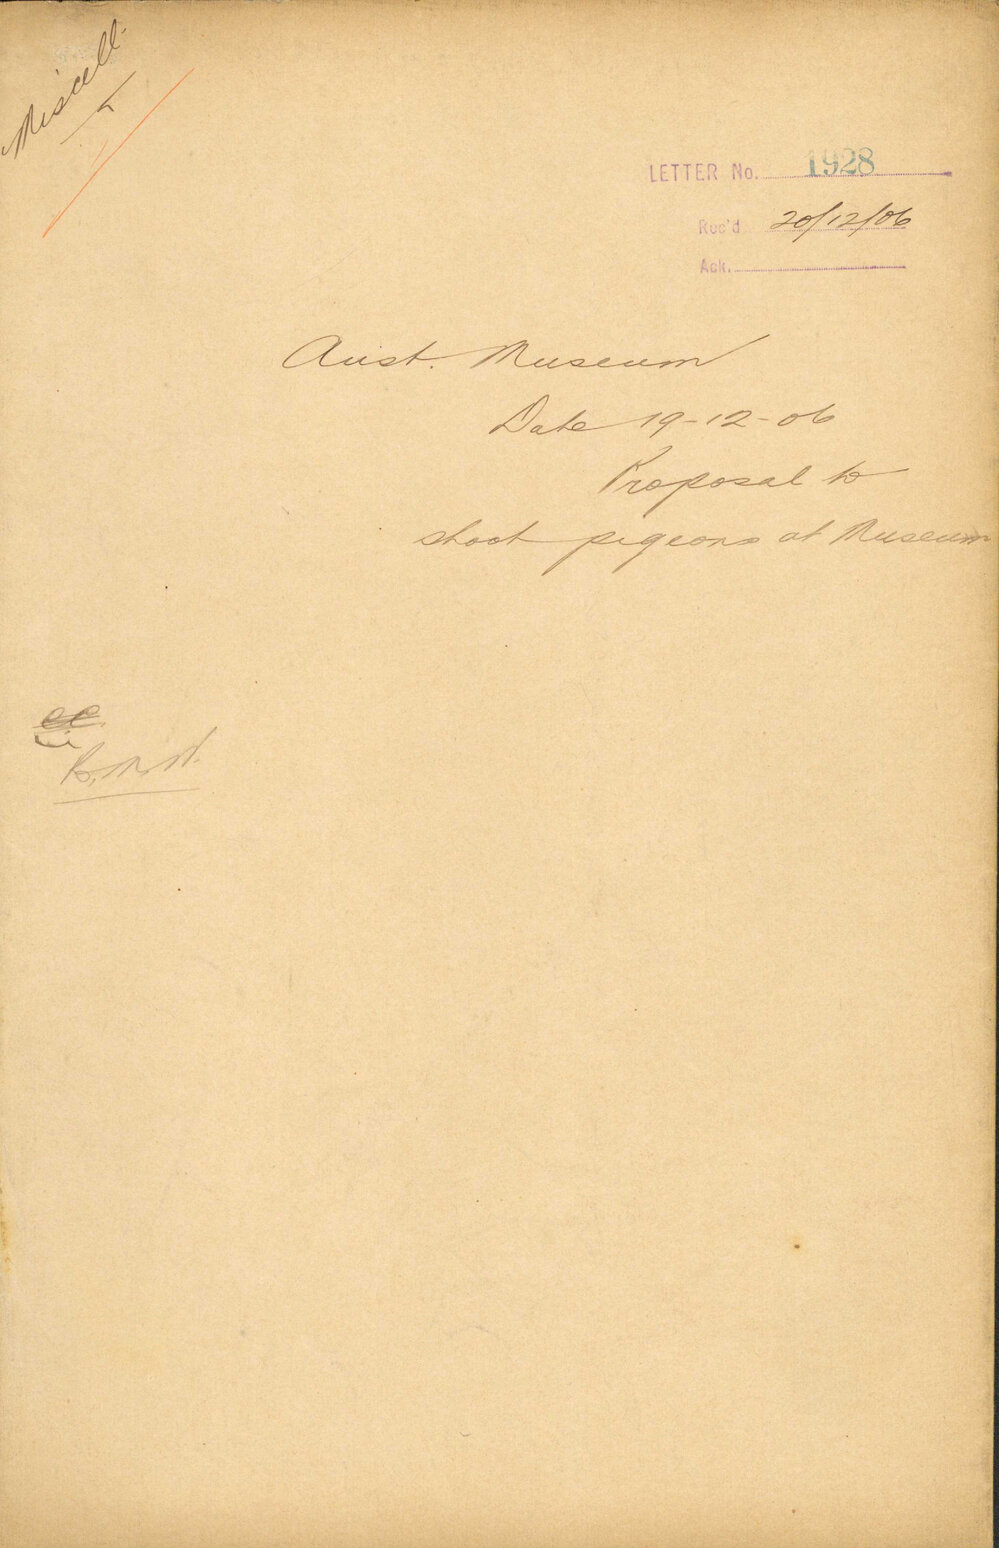 Miscell.
LETTER No. 1928
Rec'd 20/12/06
Ack.
Aust. Museum
Date 19-12-06
Proposal to
shoot pigeons at Museum